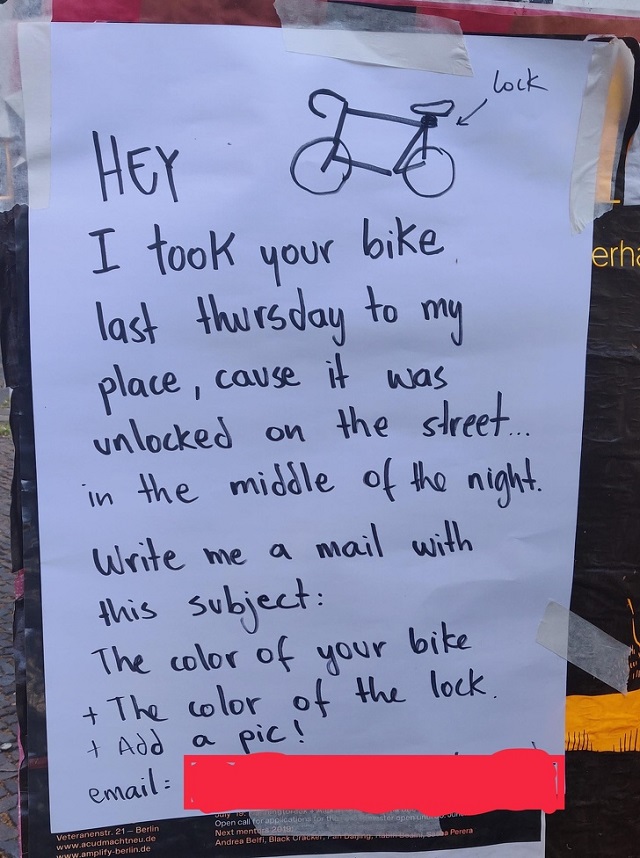 lock
HEY
I took your bike
last thursday to my
place, cause it was
unlocked on the street...
in the middle of the night.
Write me a mail with
this subject:
The color of your bike
+ The color of the lock.
+ Add a pic!
email:
erha
Veteranenstr. 21 – Berlin
www.acudmachtneu.de
www.amplify-berlin.de
Open call for applications for
Next mentors 2019:
Andrea Belfi, Black Cracker, Perera